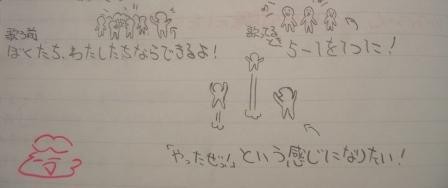 歌う前
ぼくたち、わたしたちならできるよ!
歌ってるとき
5-1を1つに!
「やったぜっ!」という感じになりたい!